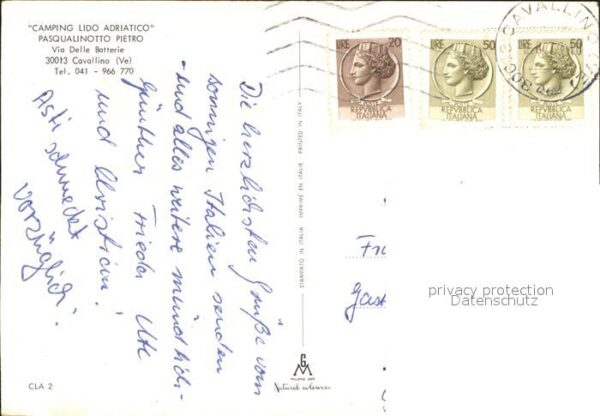 "CAMPING LIDO ADRIATICO"
PASQUALINOTTO PIETRO
Via Delle Batterie
30013 Cavallino (Ve)
Tel. 041 - 966 770
Die herzlichsten Grüße vom
sonnigen Italien senden
- und alles weitere mündlich -
Günther Frieda Ute
und Christian!
Asti schmeckt
vorzüglich!
CLA 2
STAMPATO IN ITALIA IMPRIMÉ EN ITALIE PRINTED IN ITALY
MILANO
Natural colour
LIRE 20
REPVBBLICA
ITALIANA
LIRE 50
REPVBBLICA
ITALIANA
LIRE 50
REPVBBLICA
ITALIANA
CAVALLINO
Gast
privacy protection
Datenschutz